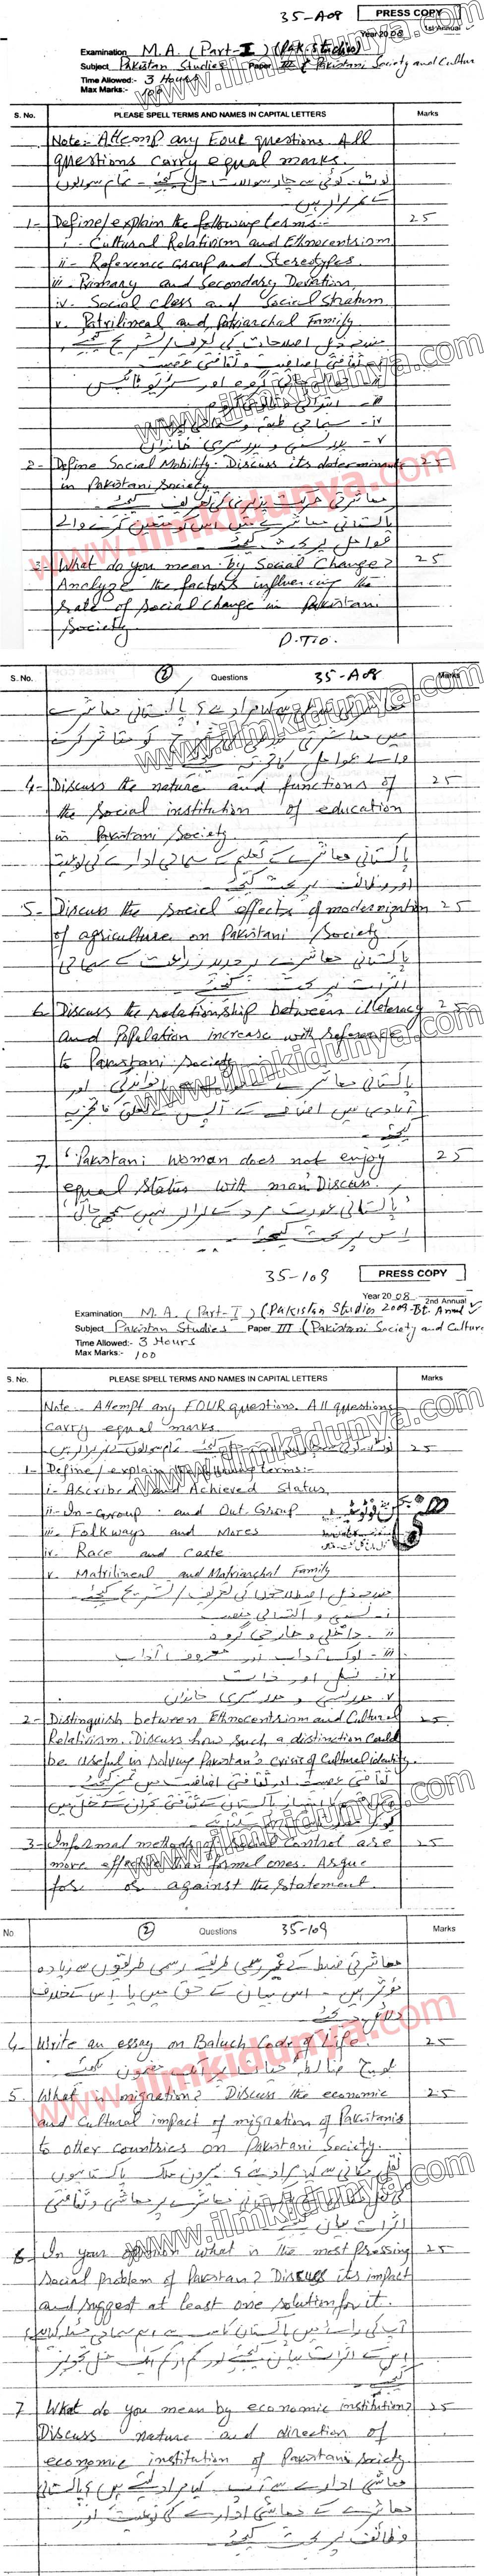 35-A08
PRESS COPY
Year 2008 1st Annual ✓
Examination M.A. (Part-I) (Pak. Studies)
Subject Pakistan Studies Paper III (Pakistani Society and Cultur
Time Allowed:- 3 Hours
Max Marks:- 100
S. No. PLEASE SPELL TERMS AND NAMES IN CAPITAL LETTERS Marks
Note:- Attemp any Four questions. All
questions carry equal marks.
نوٹ۔ کوئی سے چار سوالات حل کیجئے۔ تمام سوالوں
کے نمبر برابر ہیں۔
1- Define/explain the following terms:- 25
i- Cultural Relativism and Ethnocentrism
ii- Reference Group and Stereotypes
iii- Primary and Secondary Deviation
iv- Social class and Social Stratum
v. Patrilineal and Patriarchal Family
مندرجہ ذیل اصطلاحات کی تعریف/تشریح کیجئے۔
ثقافتی اضافیت و ثقافتی عصبیت
گروہ اور سٹریو ٹائپس
iv- سماجی طبقہ و سماجی
v- پدر نسبی و پدر سری خاندان
2- Define Social Mobility. Discuss its determinants 25
in Pakistani Society
معاشرتی حرکت پذیری کی تعریف کیجئے۔
پاکستانی معاشرے میں اس کو متعین کرنے والے
عوامل پر بحث کیجئے۔
3. What do you mean by Social Change? 25
Analyze the factors influencing the
rate of social change in Pakistani
Society
P.T.O.
S. No. (2) Questions 35-A08 Marks
سے کیا مراد ہے؟ پاکستانی معاشرے
میں معاشرتی کو متاثر کرنے
والے عوامل کا تجزیہ
4- Discuss the nature and functions of 25
the social institution of education
in Pakistani Society
پاکستانی معاشرے کے تعلیم کے سماجی ادارے کی نوعیت
اور وظائف پر بحث کیجئے۔
5- Discuss the social effects of modernization 25
of agriculture on Pakistani Society
پاکستانی معاشرے پر جدید زراعت کے سماجی
اثرات پر بحث کیجئے۔
6. Discuss the relationship between illeteracy 25
and Population increase with reference
to Pakistani Society
پاکستانی معاشرے ناخواندگی اور
آبادی میں اضافے کے آپس کے تعلق کا تجزیہ
کیجئے۔
7. 'Pakistani woman does not enjoy 25
equal status with man' Discuss.
'پاکستانی عورت مرد کے برابر نہیں سمجھی جاتی'
اس پر بحث کیجئے۔
35-109
PRESS COPY
Year 2008 2nd Annual
Examination M.A. (Part-I) (Pakistan Studies 2009-Ist. Annual ✓
Subject Pakistan Studies Paper III (Pakistani Society and Culture
Time Allowed:- 3 Hours
Max Marks:- 100
S. No. PLEASE SPELL TERMS AND NAMES IN CAPITAL LETTERS Marks
Note:- Attempt any FOUR questions. All questions
carry equal marks.
نوٹ۔ کوئی سے چار کیجئے۔ تمام سوالوں کے نمبر برابر ہیں۔ 25
1- Define/explain the following terms:-
i- Ascribed and Achieved Status
ii- In-Group and Out-Group
iii- Folkways and Mores
iv- Race and Caste
v. Matrilineal and Matriarchal Family
مندرجہ ذیل اصطلاحوں کی تعریف/تشریح کیجئے۔
i- نسبی و اکتسابی حیثیت
ii- داخلی و خارجی گروہ
iii- لوک آداب اور معروف آداب
iv- نسل اور ذات
v- مادر نسبی و مادر سری خاندان
2- Distinguish between Ethnocentrism and Cultural 25
Relativism. Discuss how such a distinction could
be useful in solving Pakistan's crisis of cultural identity.
ثقافتی عصبیت اور ثقافتی اضافیت میں تمیز کیجئے۔
پاکستان کے ثقافتی بحران کے حل میں
3- Informal methods of social control are 25
more effective than formal ones. Argue
for or against the statement.
No. (2) Questions 35-109 Marks
معاشرتی ضبط کے غیر رسمی طریقے رسمی طریقوں سے زیادہ
مؤثر ہیں۔ اس بیان کے حق میں یا اس کے خلاف
دلائل دیجئے۔
4- Write an essay on Baluch Code of Life. 25
بلوچ ضابطہ حیات پر ایک مضمون لکھئے۔
5. What is migration? Discuss the economic 25
and cultural impact of migration of Pakistanis
to other countries on Pakistani Society.
نقل مکانی سے کیا مراد ہے؟ بیرون ملک پاکستانیوں
کی نقل پاکستانی معاشرے پر معاشی و ثقافتی
اثرات بیان کیجئے۔
6- In your opinion what is the most pressing 25
social problem of Pakistan? Discuss its impact
and suggest at least one solution for it.
آپ کی رائے میں پاکستان کا سب سے اہم سماجی مسئلہ کیا ہے؟
اس کے اثرات بیان کیجئے اور کم از کم ایک حل تجویز
کیجئے۔
7 What do you mean by economic institution? 25
Discuss nature and direction of
economic institution of Pakistani Society.
معاشی ادارے سے آپ کیا مراد لیتے ہیں؟ پاکستانی
معاشرے کے معاشی ادارے کی نوعیت اور
وظائف پر بحث کیجئے۔
www.ilmkidunya.com